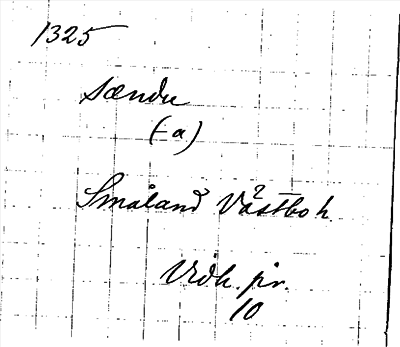 1325
Sændu
(-a)
Småland Västbo h
Vidh. pr.
10